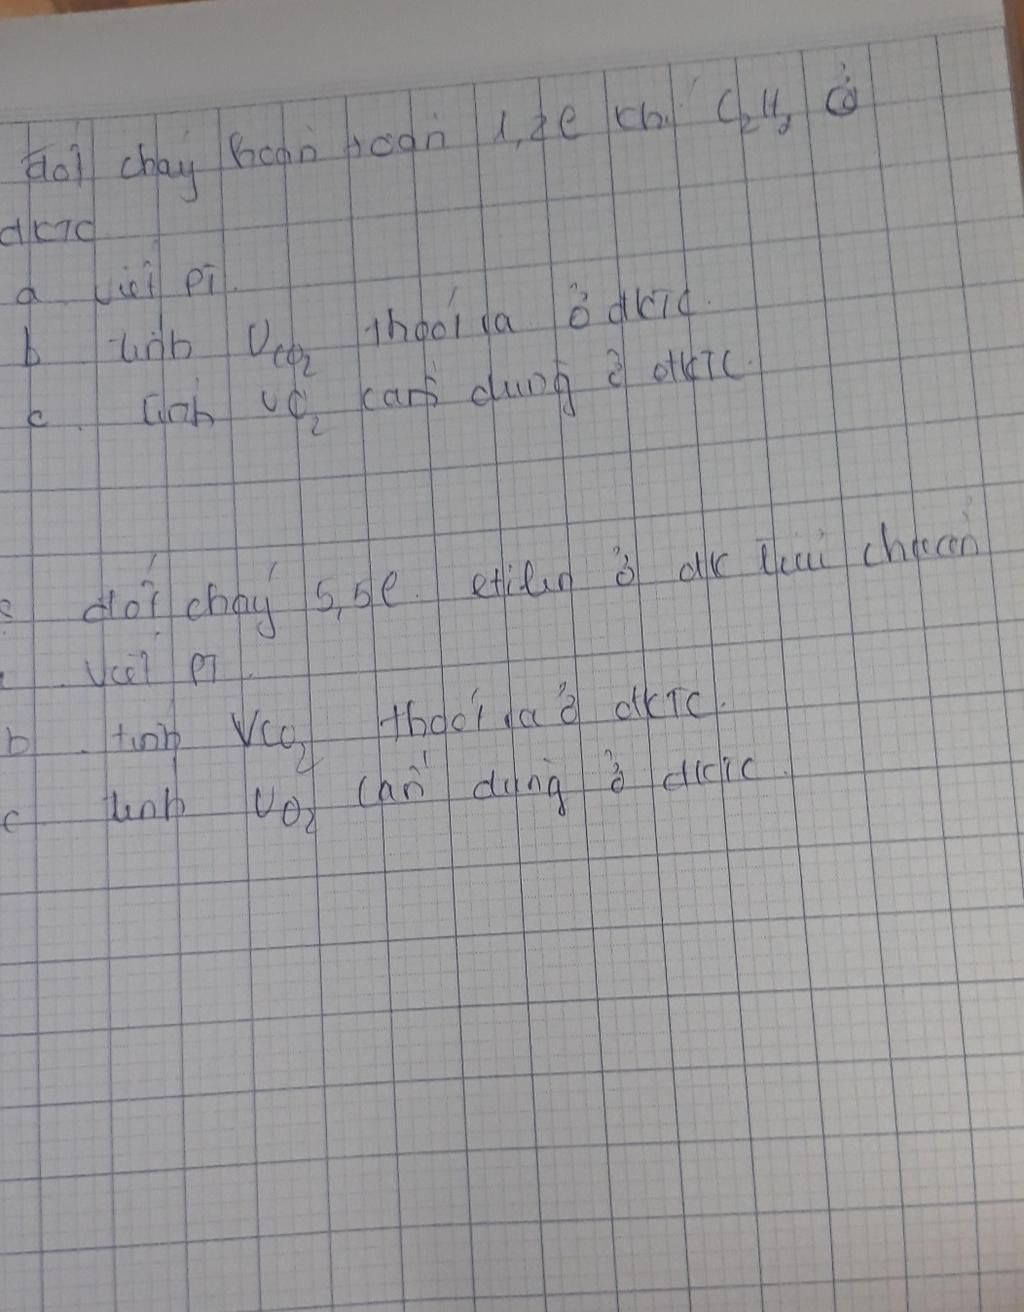 đốt cháy hoàn toàn 1,2l khí C₂H₂ ở
đktc
a viết PT.
b tính VCO₂ thoát ra ở đktc.
c. tính VO₂ cần dùng ở đktc.
đốt cháy 5,5l. etilen ở đk tiêu chuẩn
viết PT.
b. tính VCO₂ thoát ra ở đktc.
c tính VO₂ cần dùng ở đktc.